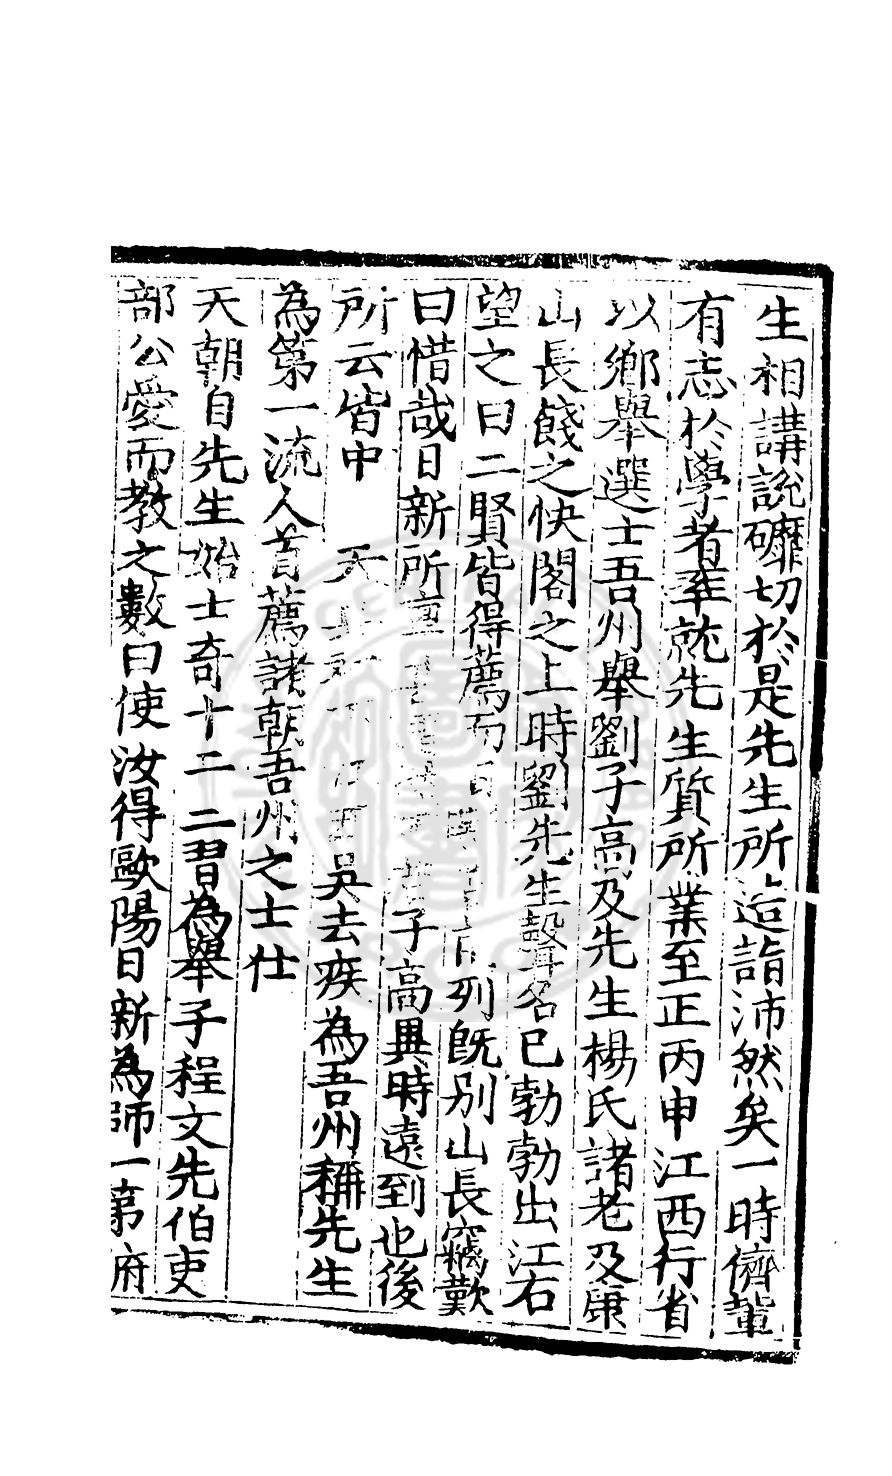 生相講說礲切於是先生所造詣沛然矣一時儕輩
有志於學者率就先生質所業至正丙申江西行省
以鄉舉選士吾州舉劉子高及先生楊氏諸老及康
山長餞之快閣之上時劉先生聲名已勃勃出江右
望之曰二賢皆得薦而列既別山長竊歎
曰惜哉日新所子高異時遠到也後
所云皆中天吳去疾為吾州稱先生
為第一流人首薦諸朝吾州之士仕
天朝自先生始士奇十二二習為舉子程文先伯吏
部公愛而教之數曰使汝得歐陽日新為師一第府